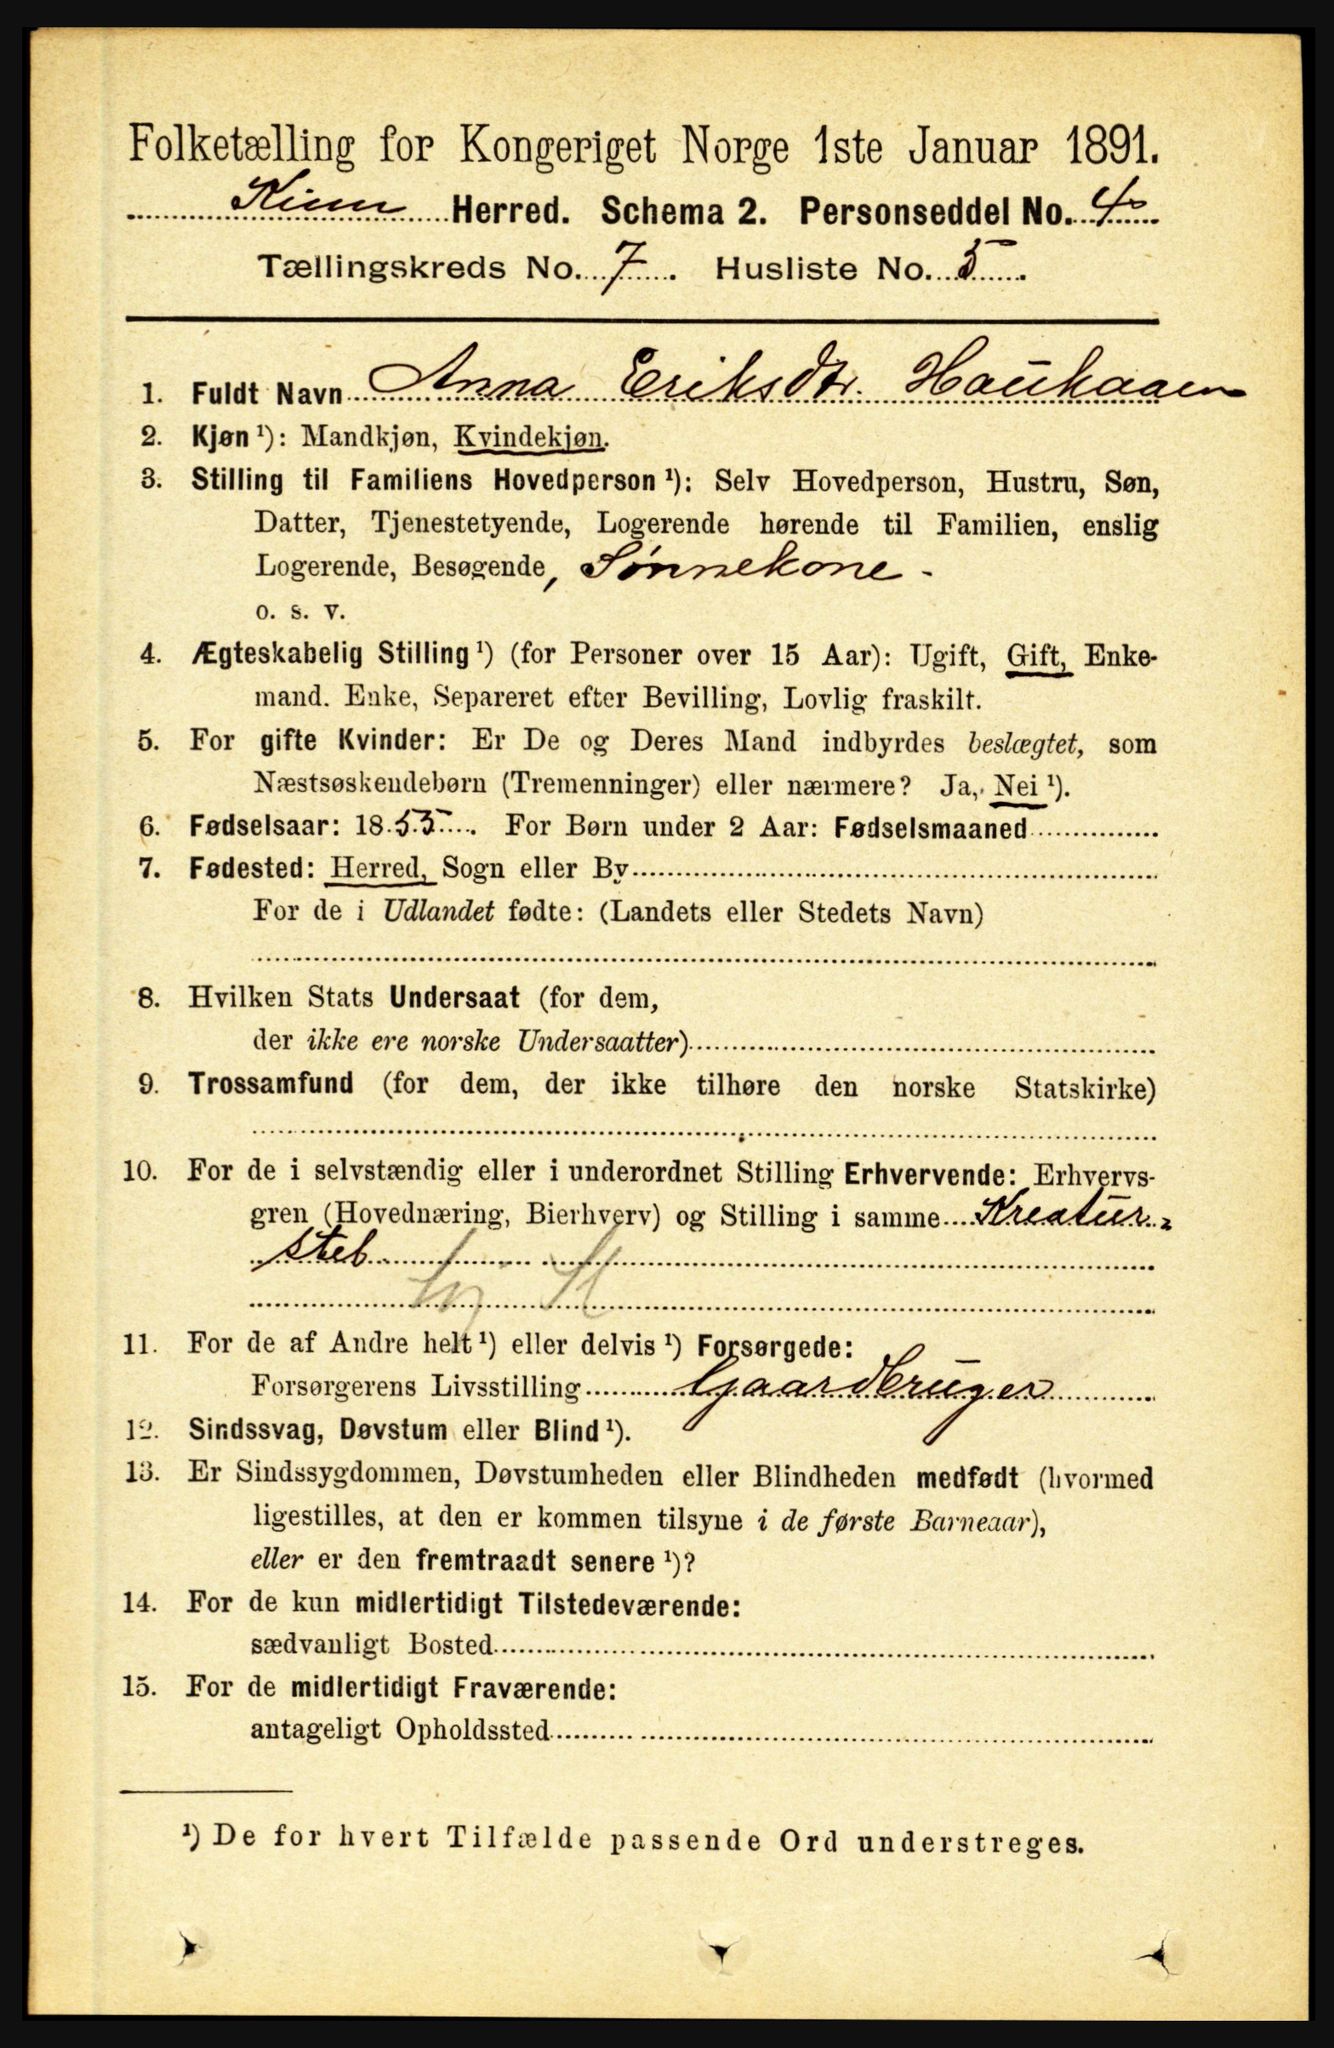 Folketælling for Kongeriget Norge 1ste Januar 1891.
Kinn Herred. Schema 2. Personseddel No. 4
Tællingskreds No. 7. Husliste No. 5.
1. Fuldt Navn Anna Eriksdtr. Hauhaaen
2. Kjøn ¹): Mandkjøn, Kvindekjøn.
3. Stilling til Familiens Hovedperson ¹): Selv Hovedperson, Hustru, Søn,
Datter, Tjenestetyende, Logerende hørende til Familien, enslig
Logerende, Besøgende, Sønnekone -
o. s. v.
4. Ægteskabelig Stilling ¹) (for Personer over 15 Aar): Ugift, Gift, Enke-
mand. Enke, Separeret efter Bevilling, Lovlig fraskilt.
5. For gifte Kvinder: Er De og Deres Mand indbyrdes beslægtet, som
Næstsøskendebørn (Tremenninger) eller nærmere? Ja, Nei ¹).
6. Fødselsaar: 1855. For Børn under 2 Aar: Fødselsmaaned
7. Fødested: Herred, Sogn eller By
For de i Udlandet fødte: (Landets eller Stedets Navn)
8. Hvilken Stats Undersaat (for dem,
der ikke ere norske Undersaatter)
9. Trossamfund (for dem, der ikke tilhøre den norske Statskirke)
10. For de i selvstændig eller i underordnet Stilling Erhvervende: Erhvervs-
gren (Hovednæring, Bierhverv) og Stilling i samme Kreatur=
stel
11. For de af Andre helt ¹) eller delvis ¹) Forsørgede:
Forsørgerens Livsstilling Gaardbruger
12. Sindssvag, Døvstum eller Blind ¹).
13. Er Sindssygdommen, Døvstumheden eller Blindheden medfødt (hvormed
ligestilles, at den er kommen tilsyne i de første Barneaar),
eller er den fremtraadt senere ¹)?
14. For de kun midlertidigt Tilstedeværende:
sædvanligt Bosted
15. For de midlertidigt Fraværende:
antageligt Opholdssted
¹) De for hvert Tilfælde passende Ord understreges.